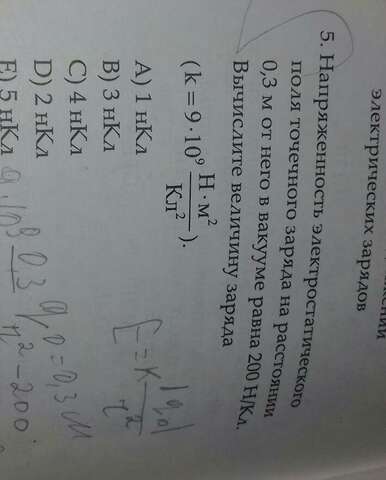 электрических зарядов
5. Напряженность электростатического
поля точечного заряда на расстоянии
0,3 м от него в вакууме равна 200 Н/Кл.
Вычислите величину заряда
(k = 9 · 10⁹ Н · м²/Кл²).
A) 1 нКл
B) 3 нКл
C) 4 нКл
D) 2 нКл
E) 5 нКл
E = K |q₀|/r²
= 0,3 м